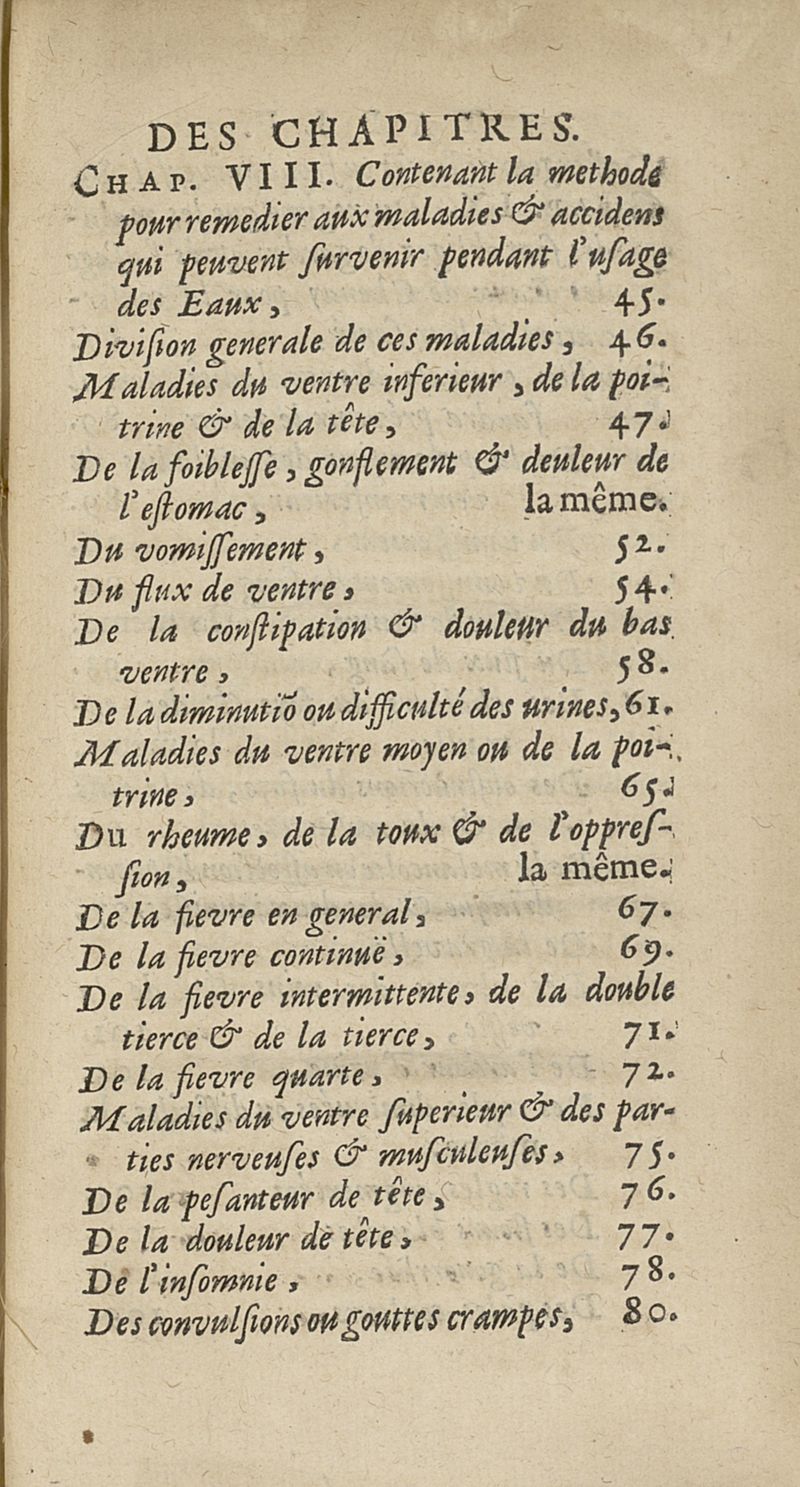 DES CHAPITRES.
CHAP. VIII. Contenant la methode
pour remedier aux maladies & accidens
qui peuvent ſurvenir pendant l'uſage
des Eaux, 45.
Diviſion generale de ces maladies, 46.
Maladies du ventre inferieur, de la poi-
trine & de la tête, 47.
De la foibleſſe, gonflement & deuleur de
l'eſtomac, la même.
Du vomiſſement, 52.
Du flux de ventre, 54.
De la conſtipation & douleur du bas
ventre, 58.
De la diminutiõ ou difficulté des urines, 61.
Maladies du ventre moyen ou de la poi-
trine, 65.
Du rheume, de la toux & de l'oppreſ-
ſion, la même.
De la fievre en general, 67.
De la fievre continuë, 69.
De la fievre intermittente, de la double
tierce & de la tierce, 71.
De la fievre quarte, 72.
Maladies du ventre ſuperieur & des par-
ties nerveuſes & muſculeuſes, 75.
De la peſanteur de tête, 76.
De la douleur de tête, 77.
De l'inſomnie, 78.
Des convulſions ou gouttes crampes, 80.